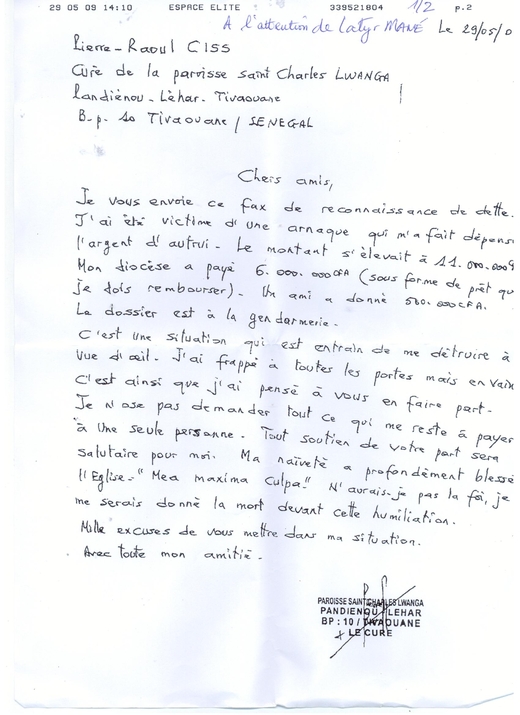 29 05 09 14:10 ESPACE ELITE 339521804 1/2 p.2
A l'attention de Latyr MANÉ Le 29/05/0
Pierre-Raoul CISS
Curé de la paroisse saint Charles LWANGA
Pandiénou-Léhar-Tivaouane
B.p. 10 Tivaouane / SENEGAL
Chers amis,
Je vous envoie ce fax de reconnaissance de dette.
J'ai été victime d'une arnaque qui m'a fait dépens
l'argent d'autrui. Le montant s'élevait à 11.000.000
Mon diocèse a payé 6.000.000CFA (sous forme de prêt qu
je dois rembourser). Un ami a donné 500.000CFA.
Le dossier est à la gendarmerie.
C'est une situation qui est entrain de me détruire à
vue d'œil. J'ai frappé à toutes les portes mais en vain
C'est ainsi que j'ai pensé à vous en faire part.
Je n'ose pas demander tout ce qui me reste à payer
à une seule personne. Tout soutien de votre part sera
salutaire pour moi. Ma naïveté a profondément blessé
l'Eglise. "Mea maxima culpa." N'aurais-je pas la foi, je
me serais donné la mort devant cette humiliation.
Mille excuses de vous mettre dans ma situation.
Avec toute mon amitié.
PAROISSE SAINT CHARLES LWANGA
PANDIENOU LEHAR
BP : 10 / TIVAOUANE
LE CURE